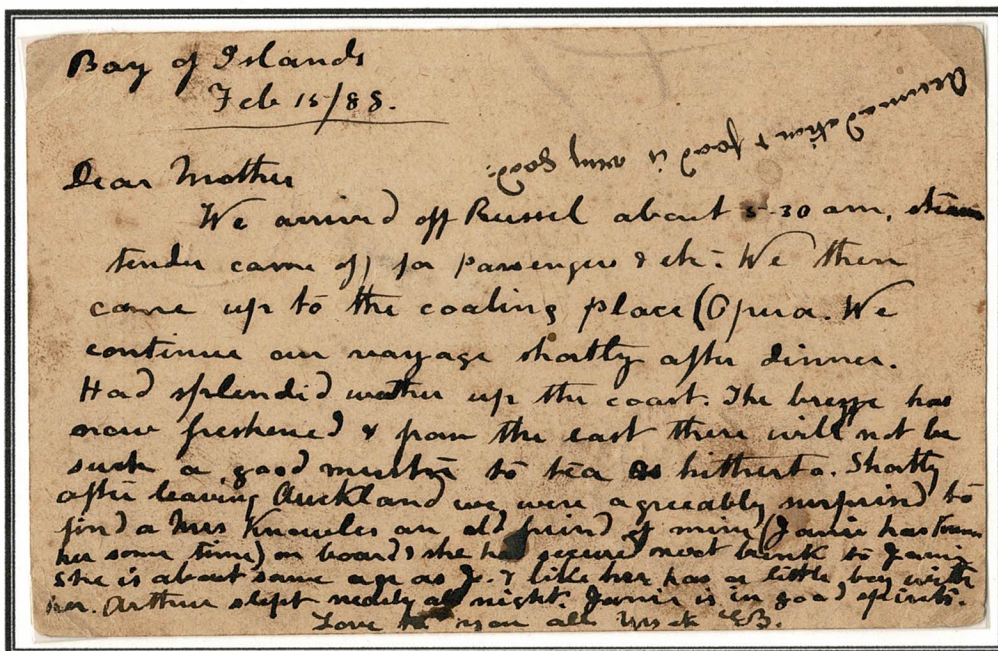 Bay of Islands
Feb 15/88.
Accomodation & food is very good.
Dear Mother
We arrived off Russel about 5-30 am, steam
tender came off for passengers & etc. We then
came up to the coaling place (Opua. We
continue our voyage shortly after dinner.
Had splendid weather up the coast. The breeze has
now freshened & from the east there will not be
such a good muster to tea as hitherto. Shortly
after leaving Auckland we were agreeably surprised to
find a Mrs Knowles an old friend of mine (Janie has known
her some time) on board & she had secured next bunk to Janie
She is about same age as J. & like her has a little boy with
her. Arthur slept nearly all night. Janie is in good spirits.
Love to you all Yrs etc EB.